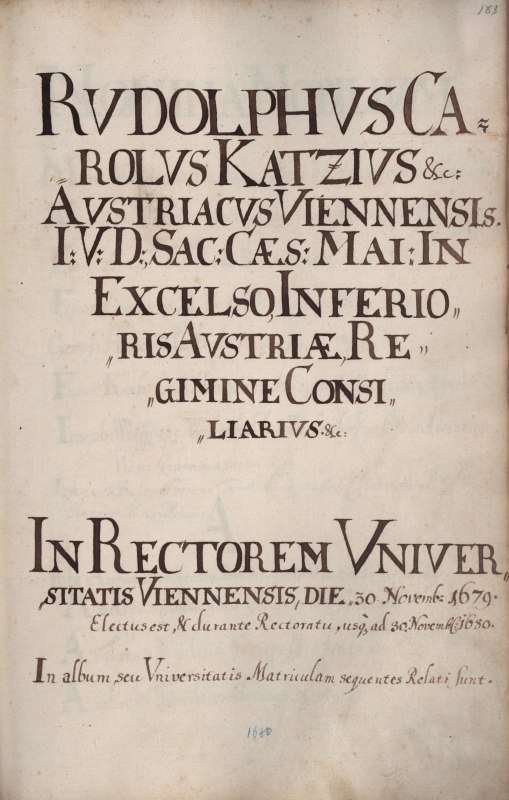 183
RVDOLPHVS CA=
=ROLVS KATZIVS &c:
AVSTRIACVS VIENNENSIS.
I: V: D:, SAC: CÆS: MAI: IN
EXCELSO, INFERIO„
„RIS AVSTRIÆ, RE„
„GIMINE CONSI„
„LIARIVS. &c:
IN RECTOREM VNIVER„
„SITATIS VIENNENSIS, DIE. 30 Novemb: 1679.
Electus est, & durante Rectoratu, usq, ad 30 Novemb: 1680.
In album, seu Vniversitatis Matriculam sequentes Relati, sunt.
1680